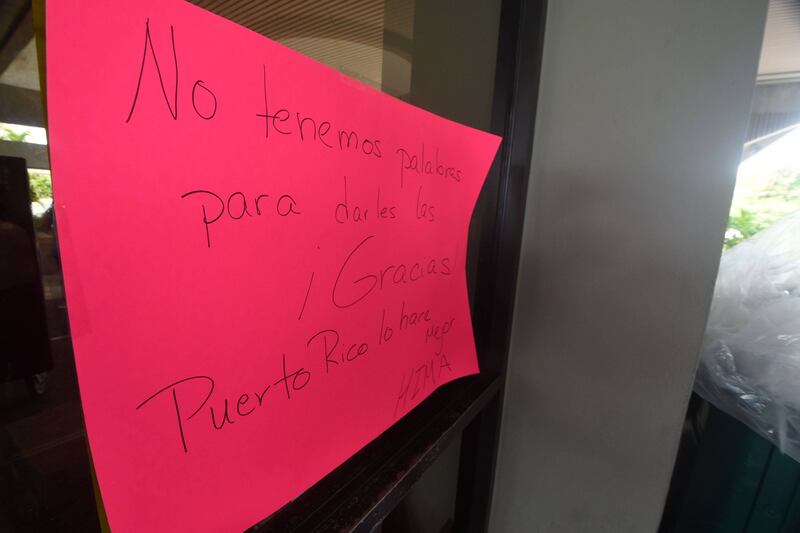 No tenemos palabras
para darles las
¡Gracias!
Puerto Rico lo hace
Mejor
HIMA